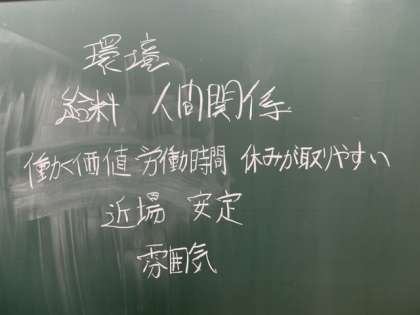 環境
給料 人間関係
働く価値 労働時間 休みが取りやすい
近場 安定
雰囲気